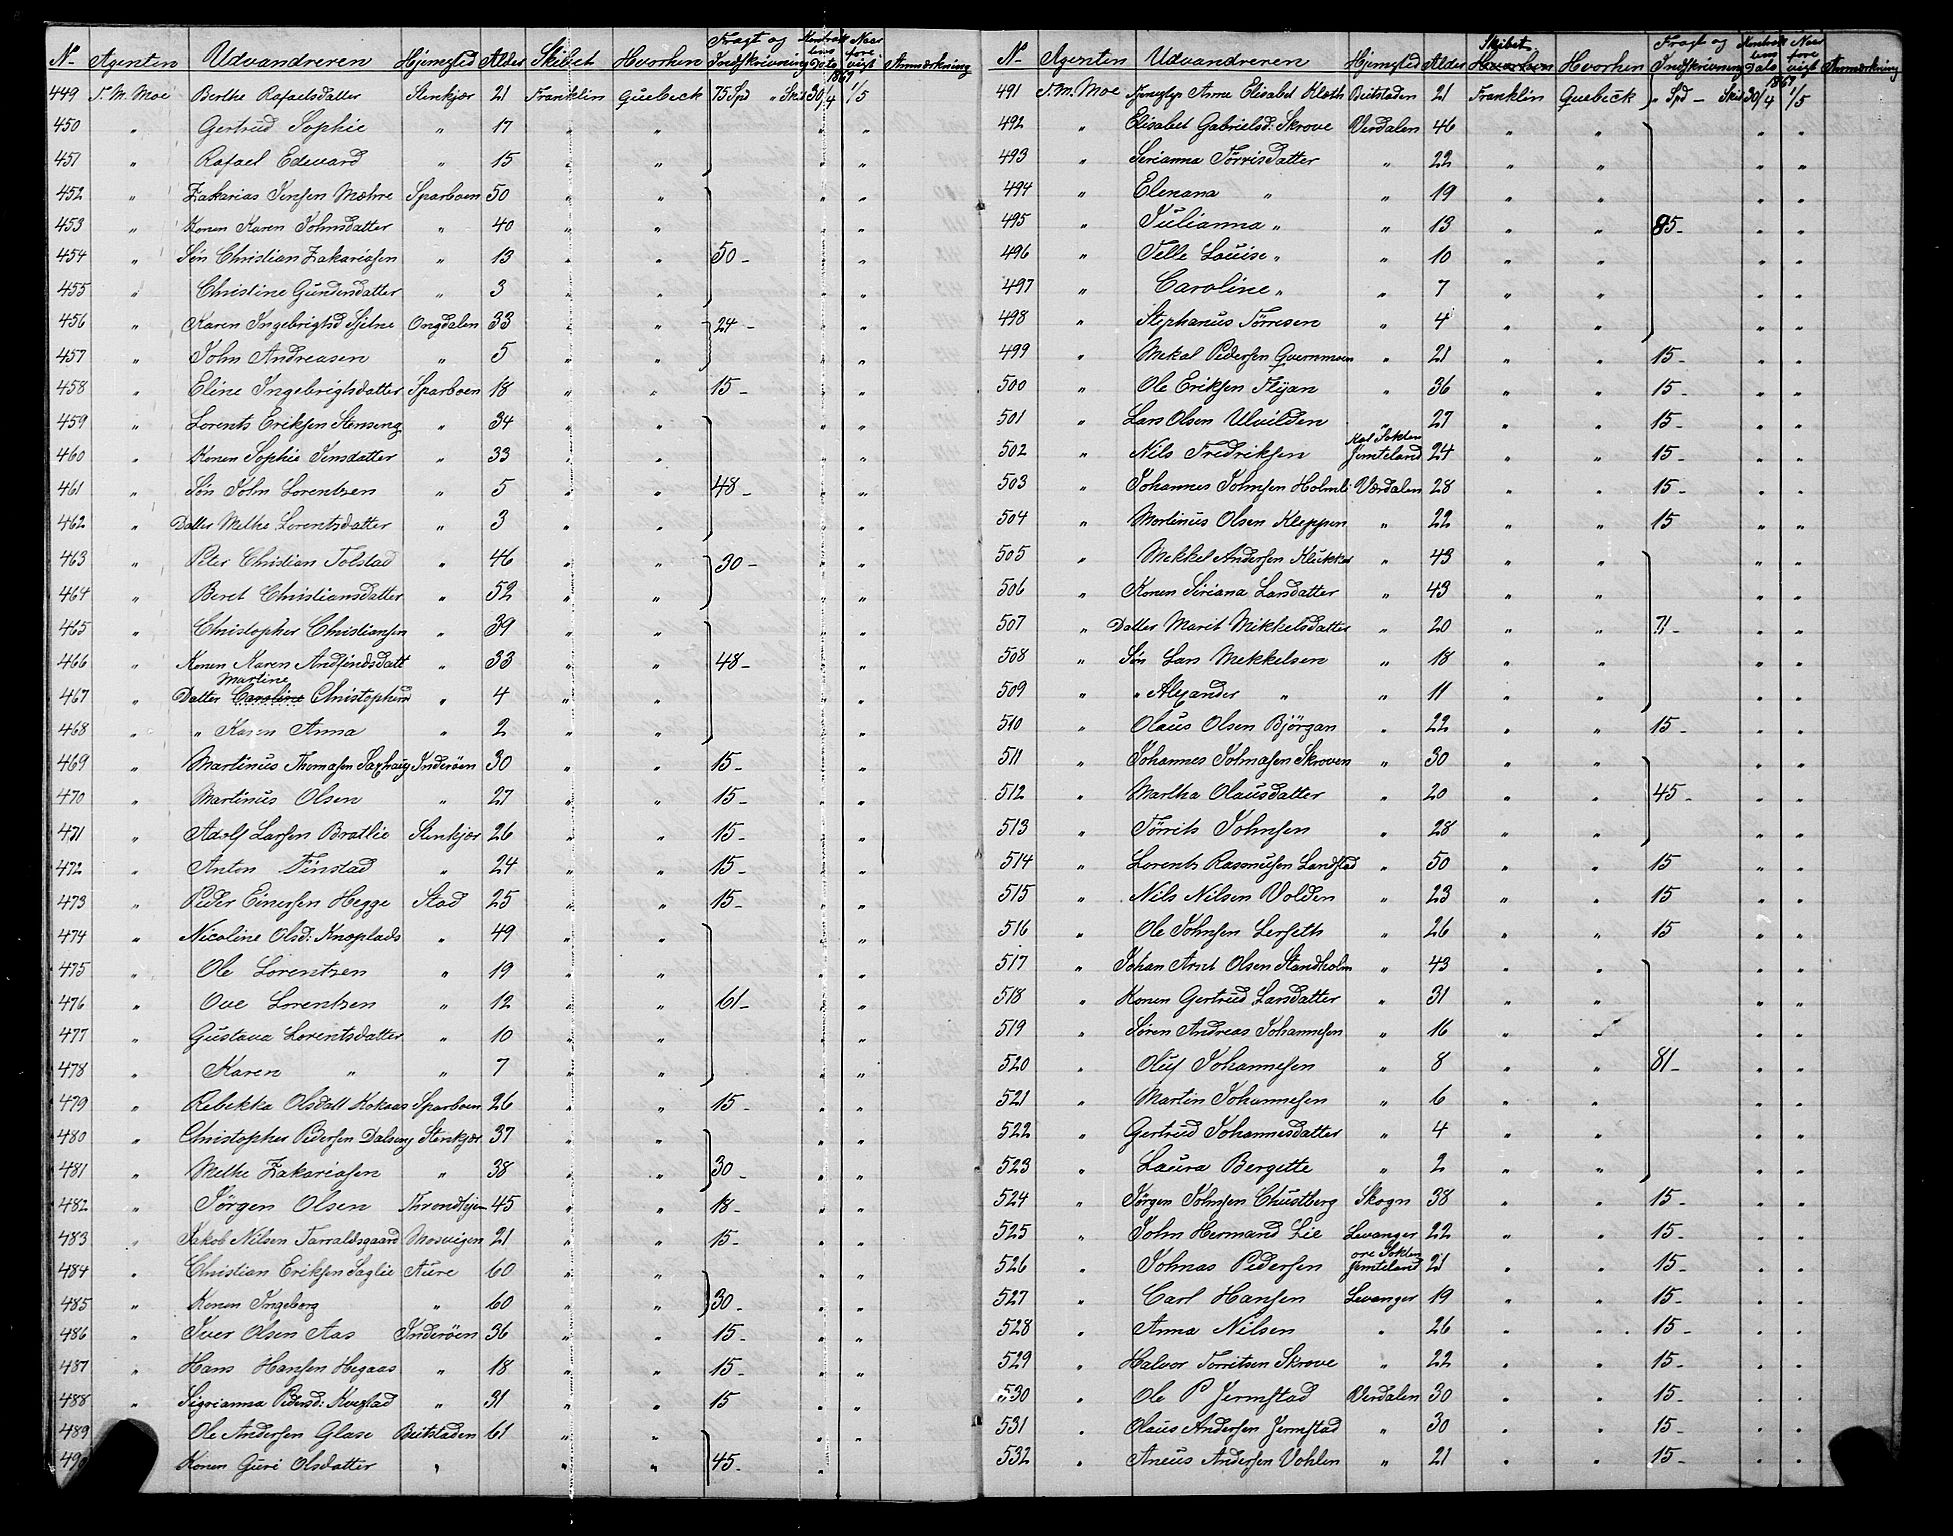 No Agenten Udvandreren Hjemsted Alder Skibet Hvorhen Fragt og Indskrivning Kontraktens Dato 1867 Naar forevist Anmærkning
449 J. M. Moe Berthe Rafaelsdatter Stenkjær 21 Franklin Quebeck 75 Spd „ Skil 30/4 1/5
450 „ Gertrud Sophie „ 17 „ „ „ „
451 „ Rafael Edevard „ 15 „ „ „ „
452 „ Zakarias Jensen Mæhre Sparboen 50 „ „ „ „
453 „ Konen Karen Johnsdatter „ 40 „ „ „ „
454 „ Søn Christian Zakariasen „ 13 „ „ 50 - „ „
455 „ Christine Gundersdatter „ 3 „ „ „ „
456 „ Karen Ingebrigtsd Sjelne Ongdalen 33 „ „ 24 - „ „
457 „ John Andreasen „ 5 „ „ „ „
458 „ Eline Ingebrigtsdatter Sparboen 18 „ „ 15 - „ „
459 „ Lorents Eriksen Stenseng „ 34 „ „ „ „
460 „ Konen Sophie Jensdatter „ 33 „ „ „ „
461 „ Søn John Lorentzen „ 5 „ „ 48 - „ „
462 „ Datter Methe Lorentsdatter „ 3 „ „ „ „
463 „ Peter Christian Tolstad „ 46 „ „ 30 - „ „
464 „ Beret Christiansdatter „ 52 „ „ „ „
465 „ Christopher Christiansen „ 39 „ „ „ „
466 „ Konen Karen Andfindsdatt „ 33 „ „ 48 - „ „
Martine
467 „ Datter Caroline Christophersd „ 4 „ „ „ „
468 „ „ Karen Anna „ 2 „ „ „ „
469 „ Martinus Thomasen Saxhaug Inderøen 30 „ „ 15 - „ „
470 „ Martinus Olsen „ 27 „ „ 15 - „ „
471 „ Adolf Larsen Bratlie Stenkjær 26 „ „ 15 - „ „
472 „ Anton Finstad „ 24 „ „ 15 - „ „
473 „ Peder Einersen Hegge Stad 25 „ „ 15 - „ „
474 „ Nicoline Olsd: Knoplads „ 49 „ „ „ „
475 „ Ole Lorentzen „ 19 „ „ „ „
476 „ Ove Lorentzen „ 12 „ „ 61 - „ „
477 „ Gustava Lorentsdatter „ 10 „ „ „ „
478 „ Karen „ „ 7 „ „ „ „
479 „ Rebekka Olsdatt Kokaas Sparboen 26 „ „ 15 - „ „
480 „ Christopher Pedersen Dalseng Stenkjær 37 „ „ „ „
481 „ Methe Zakariasen „ 38 „ „ 30 - „ „
482 „ Jørgen Olsen Throndhjem 45 „ „ 18 - „ „
483 „ Jakob Nilsen Tarraldsgaard Mosvigen 21 „ „ 15 - „ „
484 „ Christian Eriksen Saglie Aure 60 „ „ „ „
485 „ Konen Ingeborg „ 60 „ „ 30 - „ „
486 „ Iver Olsen Aas Inderøen 36 „ „ 15 - „ „
487 „ Hans Hansen Hegaas „ 18 „ „ 15 - „ „
488 „ Sigrianna Pedersd: Kvistad „ 31 „ „ 15 „ „
489 „ Ole Andersen Glase Beitstaden 61 „ „ „ „
490 Konen Guri Olsdatter „ „ „ 45 - „
No Agenten Udvandreren Hjemsted Alder Skibet Hvorhen Hvorhen Fragt og Indskrivning Kontraktens Dato 1867 Naar forevist Anmærkning
491 J. M. Moe Anne Elisabet Kleth Beitstaden 21 Franklin Quebeck „ Spd - Skil 30/4 1/5
492 „ Elisabet Gabrielsd: Skrove Verdalen 46 „ „ „ „
493 „ Serianna Tørrisdatter „ 22 „ „ „ „
494 „ Elenana „ „ 19 „ „ „ „
495 „ Julianna „ „ 13 „ „ 85 - „ „
496 „ Telle Louise „ „ 10 „ „ „ „
497 „ Caroline „ „ 7 „ „ „ „
498 „ Stephanus Tørresen „ 4 „ „ „ „
499 „ Mekal Pedersen Quernmoen „ 21 „ „ 15 - „ „
500 „ Ole Eriksen Flyan „ 36 „ „ 15 - „ „
501 „ Lars Olsen Ulvilden „ 27 „ „ 15 - „ „
502 „ Nils Fredriksen Kal Sokten Jemteland 24 „ „ 15 - „ „
503 „ Johannes Johnsen Holmli Værdalen 28 „ „ 15 - „ „
504 „ Martinus Olsen Kleppen „ 22 „ „ 15 „ „
505 „ Mekkel Andersen Klukken „ 43 „ „ „ „
506 „ Konen Siriana Larsdatter „ 43 „ „ „ „
507 „ Datter Marit Mikkelsdatter „ 20 „ „ 71 - „ „
508 „ Søn Lars Mekkelsen „ 18 „ „ „ „
509 „ „ Alexander „ „ 11 „ „ „ „
510 „ Olaus Olsen Bjørgan „ 22 „ „ 15 - „ „
511 „ Johannes Johnasen Skroven „ 30 „ „ „ „
512 „ Martha Olausdatter „ 20 „ „ 45 - „ „
513 „ Tørrits Johnsen „ 28 „ „ „ „
514 „ Lorents Rasmusen Landstad „ 50 „ „ 15 „ „
515 „ Nils Nilsen Volden „ 23 „ „ 15 „ „
516 „ Ole Johnsen Lerseth „ 26 „ „ 15 „ „
517 „ Johan Arnt Olsen Standholm „ 43 „ „ „ „
518 „ Konen Gertrud Larsdatter „ 31 „ „ „ „
519 „ Søren Andreas Johannesen „ 16 „ „ „ „
520 „ Oluf Johannesen „ 8 „ „ 81 - „ „
521 „ Martin Johannesen „ 6 „ „ „ „
522 „ Gertrud Johannesdatter „ 4 „ „ „ „
523 „ Laura Bergette „ 2 „ „ „ „
524 „ Jørgen Johnsen Chustberg Skogn 38 „ „ 15 - „ „
525 „ John Hermand Lie Levanger 22 „ „ 15 - „ „
526 „ Johnas Pedersen ore Sokten Jemteland 21 „ „ 15 - „ „
527 „ Carl Hansen Levanger 19 „ „ 15 - „ „
528 „ Anna Nilsen „ 26 „ „ 15 - „ „
529 „ Halvor Torritsen Skrove „ 22 „ „ 15 - „ „
530 „ Ole P Jermstad Verdalen 30 „ „ 15 - „ „
531 „ Olaus Andersen Jermstad „ 30 „ „ 15 - „ „
532 „ Aneus Andersen Vohlen „ 21 „ „ 15 - „ „